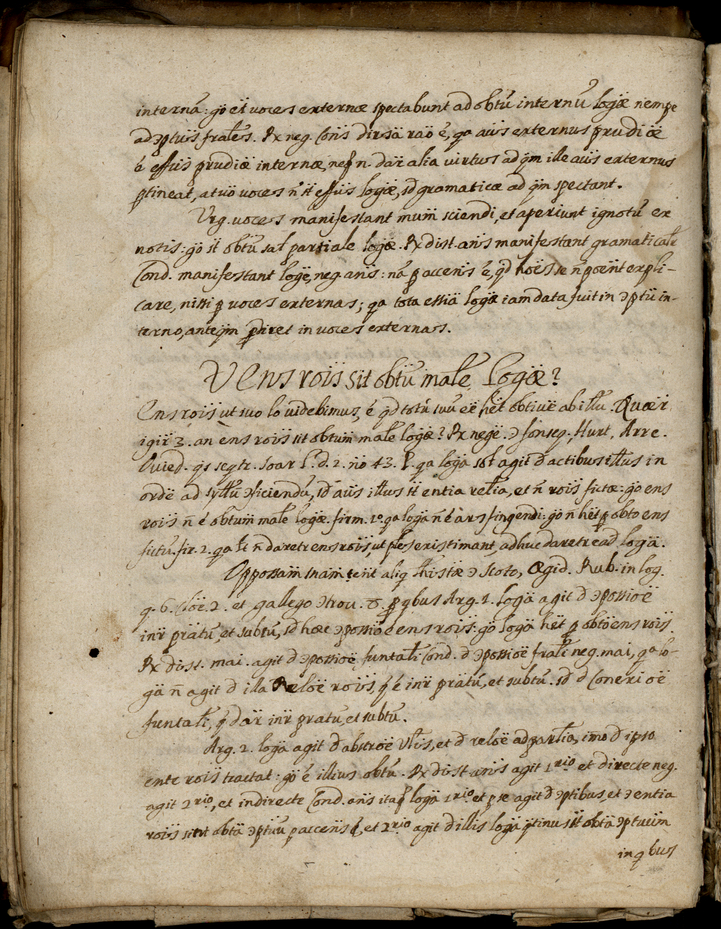 internā: go et voces externæ spectabunt ad obtū internū logæ nempe
ad ɔptus frales. Rx neg. Cons dirsa rao ē, qa aus externus prudiæ
ē effus prudiæ internæ, neq n. dar alia virtus ad qm ille aus externus
ptineat, at vō voces n st effus logæ, sd gramaticæ ad qm spectant.
Urg. voces manifestant mum sciendi, et aperiunt ignotū ex
notis: go st obtū sal partiale logæ. Rx dist. ans manifestant gramaticale
Cond. manifestant logæ, neg ans: nā p accens ē, qd hoes se n poent expli-
care, nisi p voces externas; qa tota essia logæ iam data fuit in ɔptū in-
terno, anteqm prodiret in voces externas.
V Ens rois sit obtū male Logæ?
Ens rois ut suo lo videbimus, ē qd totū suū eē het obtive ab illu. Quær
igir 3. an ens rois sit obtum male logæ? Rx nege. ɔ fonsep. Hurt, Arre.
Ovied. qs seqtr. Soar L. d. 2. no 43. P. qa loga sol agit d actibus illus in
ordē ad syllū ɔficiendū, sd aus illus st entia relia, et n rois fictæ: go ens
rois n ē obtum male logæ. firm. 1o. qa loga n ē ars fingendi: go n het p obto ens
fictū. fir. 2. qa st n daretr ens rois, ut ples existimant, adhuc daretr ead loga.
Oppositam snam tent aliq Thistæ ɔ Scoto, Ægid. Rub. in log.
q. 6. Cloē 2. et gallego ɔtrov. 8. p qbus Arg. 1. Loga agit d ɔpossioē
intr prætū, et subtū, sd hæc ɔpossio ē ens rois: go loga het p obto ens rois.
Rx dist. mai. agit d ɔpossioē funtali Cond. d ɔpossioē frali neg. mai, qa lo-
ga n agit d illa Reloē rois, q ē intr prætū, et subtū. sd d Conexioē
funtali, q dar intr prætū, et subtū.
Arg. 2. loga agit d abstroē Ulis, et d reloē ad parlia, imo d ipso
ente rois tractat: go ē illius obtū. Rx dist ans agit 1rio et directe neg.
agit 2rio, et indirecte Cond. ans itaq loga 1rio et p se agit d ɔptibus, et ɔ entia
rois sint obta ɔptuū p accens q, et 2rio agit d illis loga qtinus st obta ɔptuum
in qbus